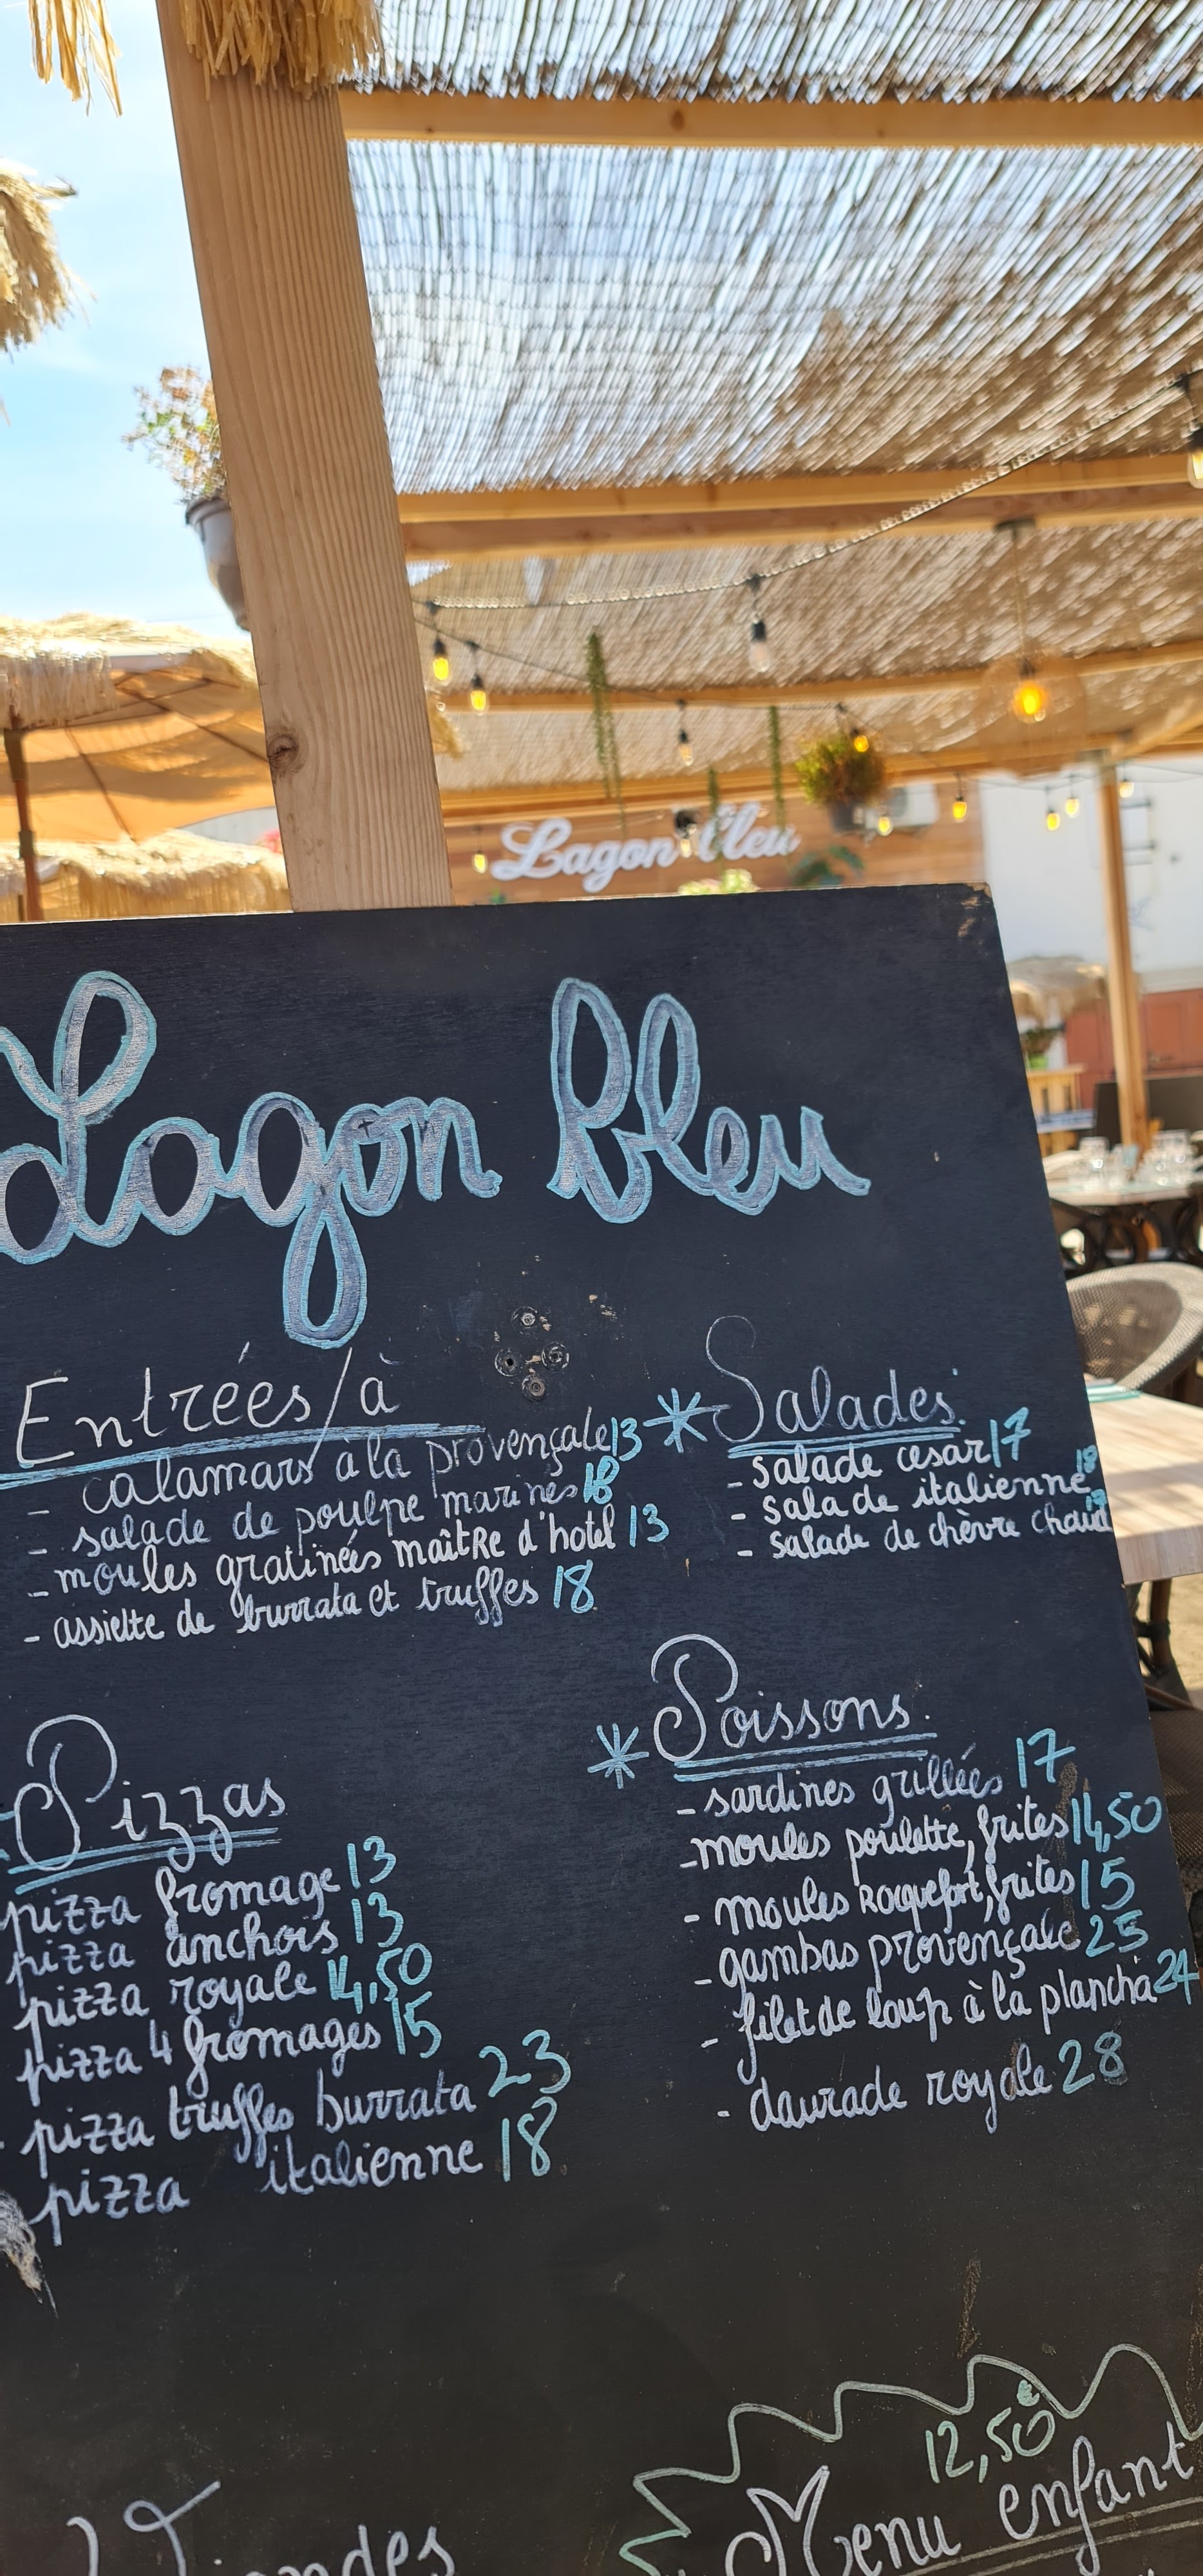 Lagon bleu
Lagon bleu
Entrées/à
- calamars à la provençale 13
- salade de poulpe marinés 18
- moules gratinées maître d'hotel 13
- assiette de burrata et truffes 18
* Salades
- salade cesar 17
- salade italienne 18
- salade de chèvre chaud
Pizzas
pizza fromage 13
pizza anchois 13
pizza royale 14,50
pizza 4 fromages 15
- pizza truffes burrata 23
pizza italienne 18
* Poissons.
- sardines grillées 17
- moules poulette, frites 14,50
- moules Roquefort, frites 15
- gambas provençale 25
- filet de loup à la plancha 24
- daurade royale 28
Viandes
12,50€
Menu enfant